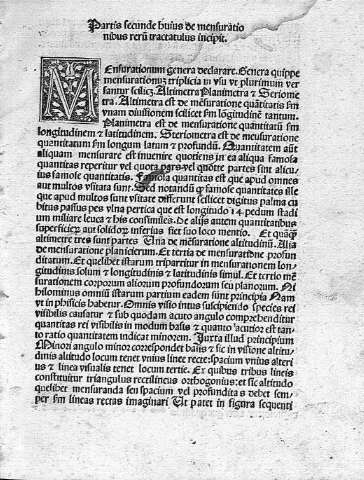 Partis secunde huius de mensuratio
nibus rerū tractatulus incipit.
MEnsurationum genera declarare. Genera quippe
mensurationuz triplicia in vsu vt plurimum ver
santur scilicz. Altimetra Planimetra z Steriome
tra. Altimetra est de mēsuratione quātitatis fm
vnam diuisionem scilicet fm lōgitudinē tantum.
Planimetra est de mensuratione quantitatū fm
longitudinem z latitudinem. Steriometra est de mensuratione
quantitatum fm longum latum z profundū. Quantitatem aūt
aliquam mensurare est inuenire quotiens in ea aliqua famosa
quantitas reperitur vel quota pars vel quotte partes sint alicu
ius famose quantitatis. Famosa quantitas est que apud omnes
aut multos vsitata sunt. Sed notandū ꝙ famose quantitates ille
que apud multos sunt vsitate differunt scilicet digitus palma cu
bitus passus pes vlna pertica que est longitudo 14. pedum stadi
um miliare leuca z his consimiles. De alijs autem quantitatibus
superficierū aut solidorū inferius fiet suo loco mentio. Et quāꝙ
altimetre tres sunt partes Una de mēsuratione altitudinū. Alia
de mensuratione planicierum. Et tertia de mensuratione profun
ditatum. Et quelibet istarum tripartitur in mensurationem lon
gitudinis solum z longitudinis z latitudinis simul. Et tertio mē
surationem corporum aliorum profundorum seu planorum. Ni
hilominus omniū istarum partium eadem sunt principia Nam
vt in phisicis habetur. Omnis visio intus suscipiendo species rei
visibilis causatur z sub quodam acuto angulo comprehenditur
quantitas rei visibilis in modum basis z quanto acutior est tan
to ratio quantitatem indicat minorem. Juxta illud principium
Minori angulo minor correspondet basis z sic in visione altitu
dinis altitudo locum tenet vnius linee recte: spacium vnius alteri
us z linea visualis tenet locum tertie. Ex quibus tribus lineis
constituitur triangulus rectilineus orthogonius: et sic altitudo
quelibet mensuranda seu spacium vel profunditas debet sem
per fm lineas rectas imaginari Ut patet in figura sequenti